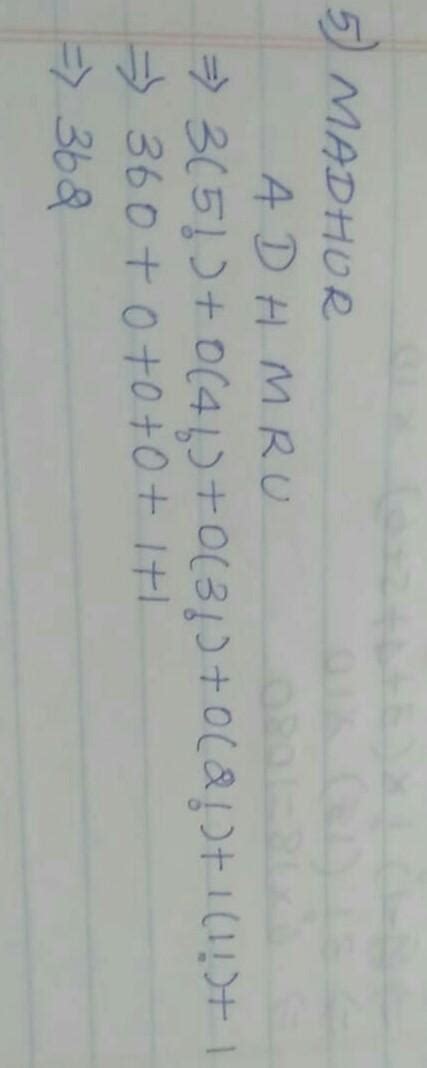 5) MADHUR
A D H M R U
⇒ 3(5!) + 0(4!) + 0(3!) + 0(2!) + 1(1!) + 1
⇒ 360 + 0 + 0 + 0 + 1 + 1
⇒ 362